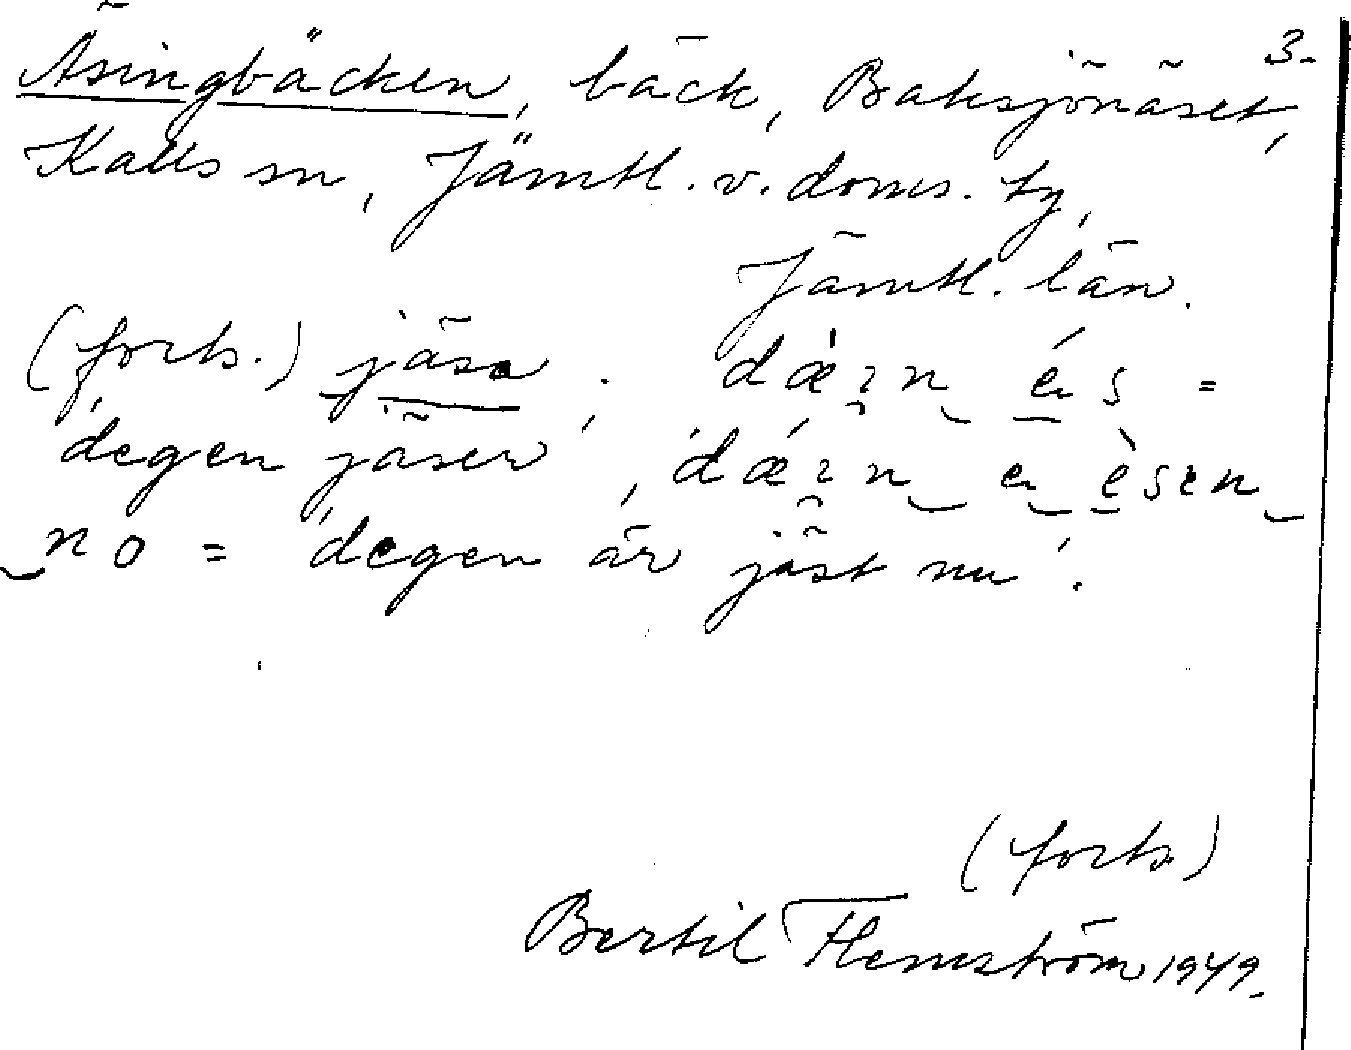 3.
Äsingbäcken, bäck, Baksjönäset,
Kalls sn, Jämtl. v. doms. tg,
Jämtl. län.
(forts.) jäsa; dæ̀ın és =
'degen jäser', dǽın e èsın
no = 'degen är jäst nu'.
(forts)
Bertil Flemström 1949.